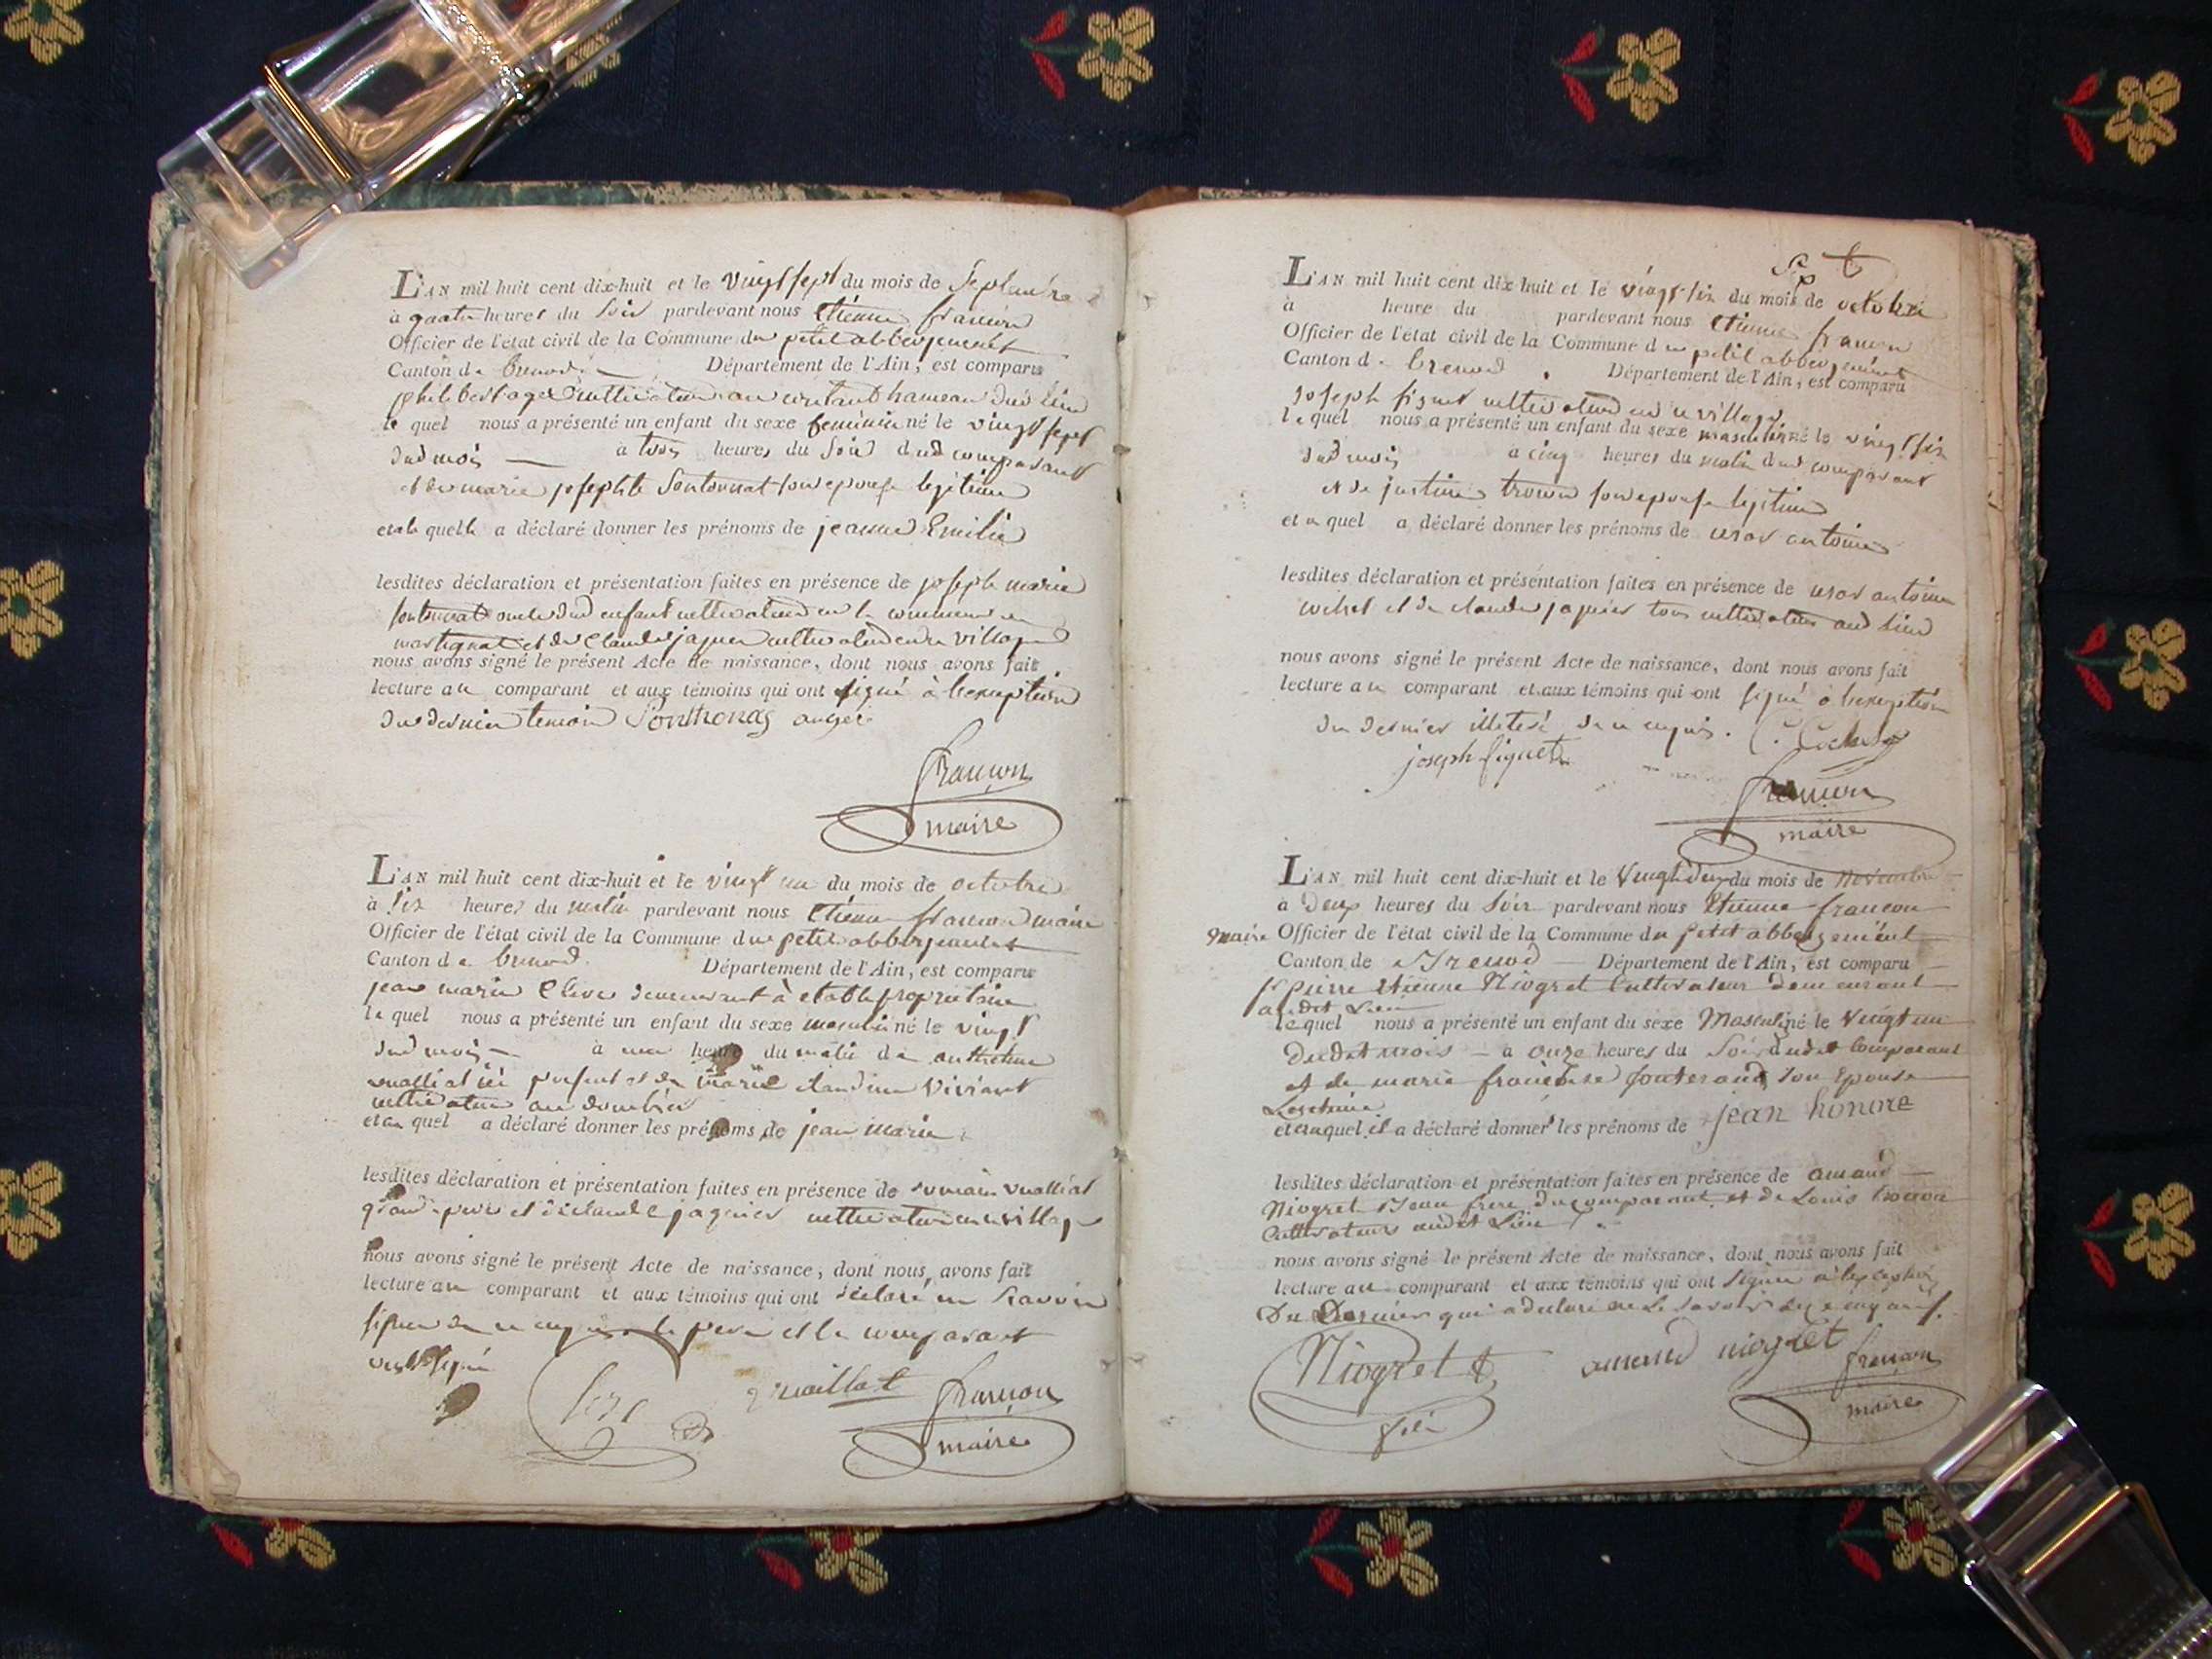 L'AN mil huit cent dix-huit et le vingt sept du mois de Septembre
à quatre heures du soir pardevant nous etienne francon
Officier de l'état civil de la Commune du petit abbergement
Canton de brenod Département de l'Ain, est comparu
philibert oger cultivateur au hameau dud lieu
le quel nous a présenté un enfant du sexe feminin né le vingt sept
dud mois à trois heures du soir dud comparant
et de marie josephte Sontonnat son epouse legitime
et a la quelle a déclaré donner les prénoms de jeanne Emilie
lesdites déclaration et présentation faites en présence de joseph marie
oncle dud enfant cultivateur en la commune de
martignat et de Claude jaquier cultivateur en ce village
nous avons signé le présent Acte de naissance, dont nous avons fait
lecture au comparant et aux témoins qui ont signé à l'exeption
du dernier temoin Sonthonas auger
francon
maire
L'AN mil huit cent dix-huit et le vingt un du mois de octobre
à six heures du matin pardevant nous etienne francon maire
Officier de l'état civil de la Commune du petit abbergement
Canton de brenod Département de l'Ain, est comparu
jean marie demeurant à etable proprietaire
le quel nous a présenté un enfant du sexe masculin né le vingt
dud mois à une heure du matin de anthelme
vualliat ici present et de marie claudine Viviant
cultivateur au
et au quel a déclaré donner les prénoms de jean marie
lesdites déclaration et présentation faites en présence de romain vualliat
grand-pere et de claude jaquier cultivateur en ce village
nous avons signé le présent Acte de naissance, dont nous avons fait
lecture au comparant et aux témoins qui ont déclaré ne savoir
signer de ce enquis le pere et le comparant
ont signé
vuaillat francon
maire
L'AN mil huit cent dix-huit et le vingt six du mois de octobre
à heure du pardevant nous etienne francon
Officier de l'état civil de la Commune du petit abbergement
Canton de brenod Département de l'Ain, est comparu
joseph figuet cultivateur en ce village
le quel nous a présenté un enfant du sexe masculin né le vingt six
dud mois à cinq heures du matin dud comparant
et de justine son epouse legitime
et au quel a déclaré donner les prénoms de antoine
lesdites déclaration et présentation faites en présence de antoine
et de claude jaquier tous cultivateurs aud lieu
nous avons signé le présent Acte de naissance, dont nous avons fait
lecture au comparant et aux témoins qui ont signé à l'exeption
du dernier illeteré de ce enquis.
joseph figuet
francon
maire
L'AN mil huit cent dix-huit et le Vingtdeux du mois de Novembre
à Deux heures du Soir pardevant nous Etienne francon
maire Officier de l'état civil de la Commune du petit abbergement
Canton de Brenod Département de l'Ain, est comparu
sr pierre Etienne Niogret Cultivateur demeurant
audit Lieu
le quel nous a présenté un enfant du sexe Masculin né le Vingt un
dudit mois à onze heures du Soir dudit Comparant
et de marie françoise son Epouse
Legitime
et auquel il a déclaré donner les prénoms de jean honore
lesdites déclaration et présentation faites en présence de amand
Niogret frere du comparant et de Louis
Cultivateurs audit Lieu
nous avons signé le présent Acte de naissance, dont nous avons fait
lecture au comparant et aux témoins qui ont signé à l'exception
Du Dernier qui a declaré ne Le Savoir de ce enquis.
Niogret amand niogret francon
maire